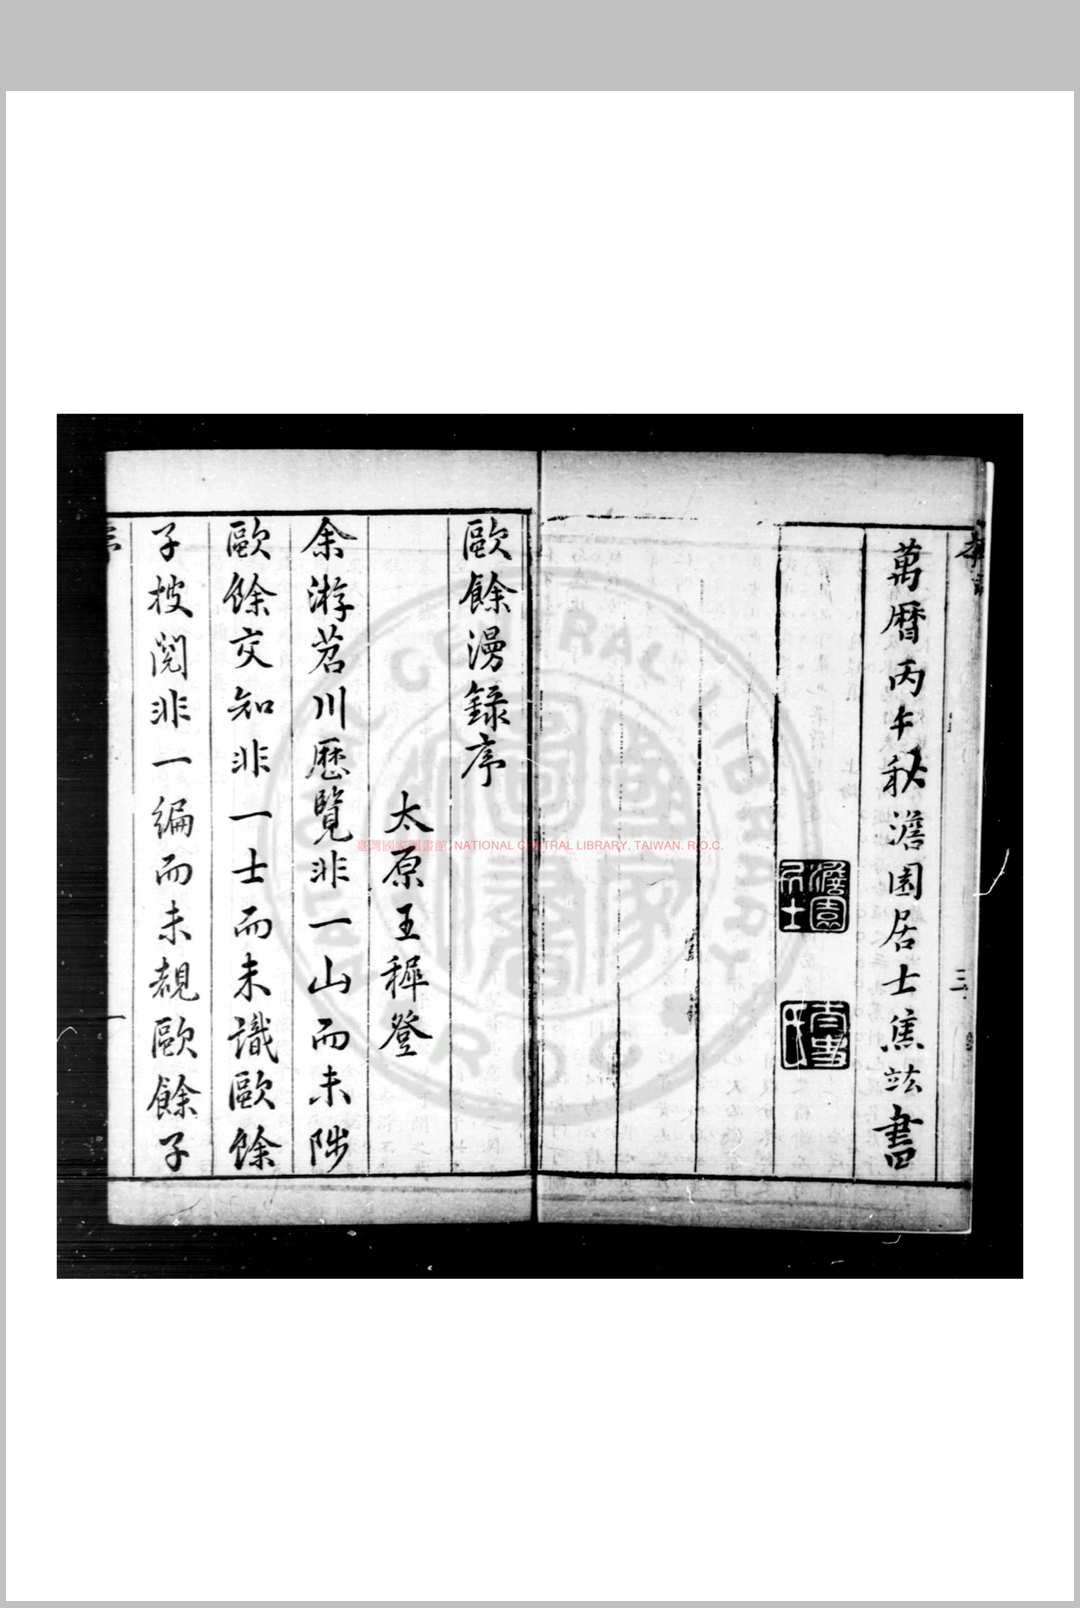 萬曆丙午秋澹園居士焦竑書
澹園居士
三
歐餘漫録序
太原王穉登
余游苕川歷覽非一山而未陟
歐餘交知非一士而未識歐餘
子披閱非一編而未覩歐餘子
臺灣國家圖書館, NATIONAL CENTRAL LIBRARY, TAIWAN. R.O.C.